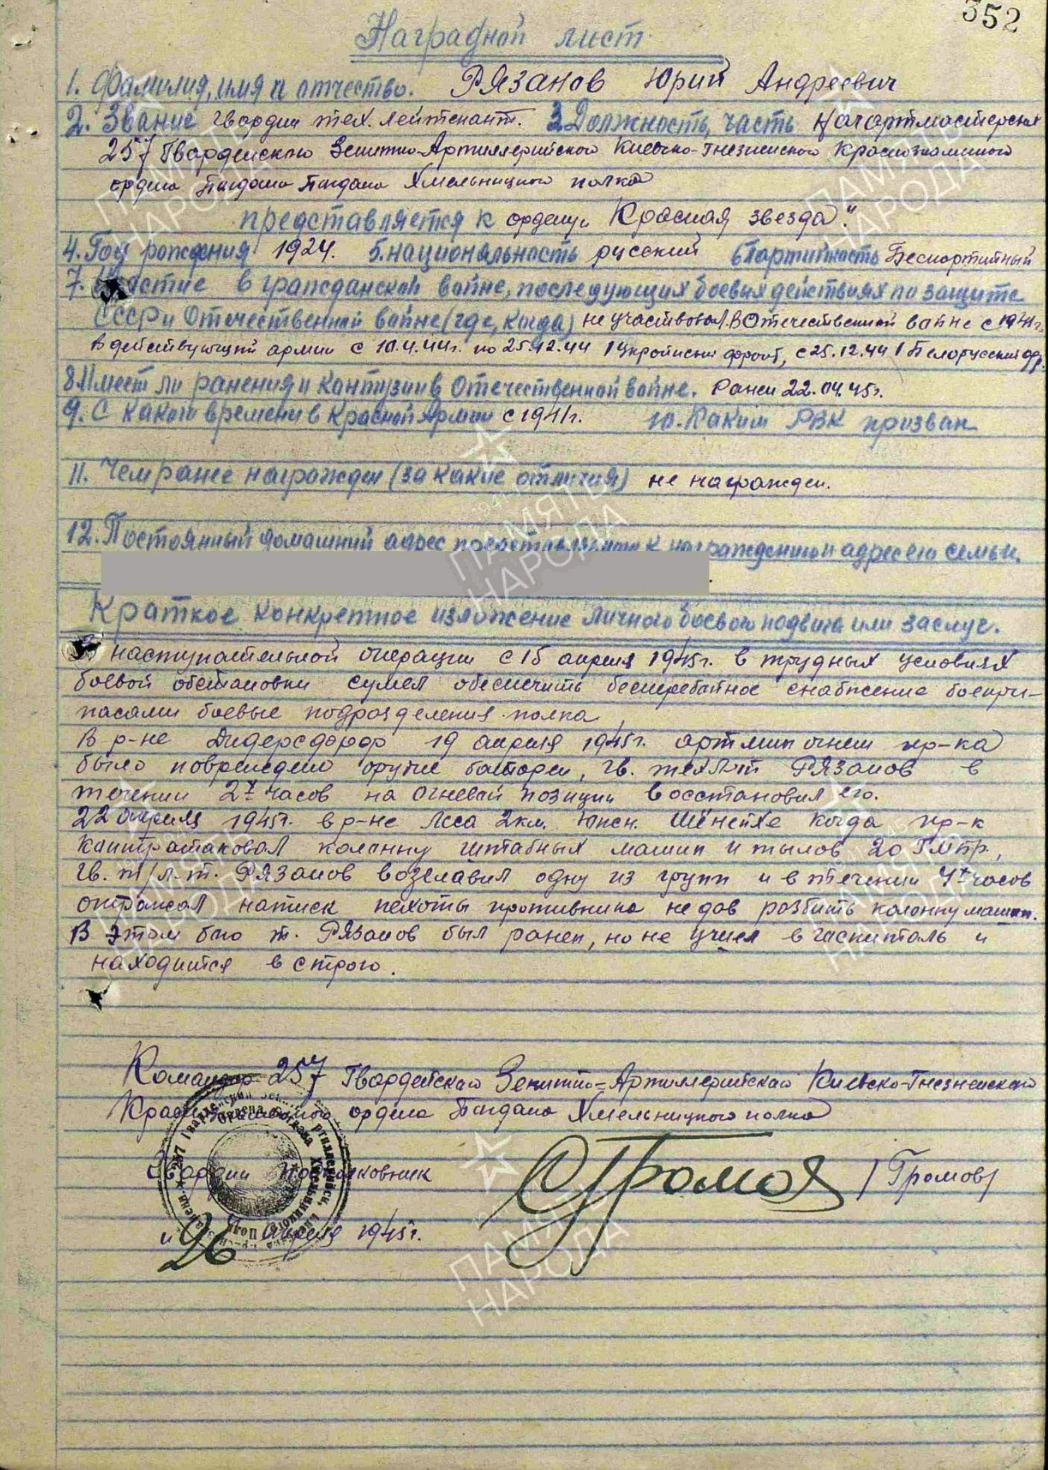 352
Наградной лист
1. Фамилия, имя и отчество. Рязанов Юрий Андреевич
2. Звание гвардии тех. лейтенант. 3. Должность, часть Начартмастерских
257 Гвардейского Зенитно-Артиллерийского Киевско-Гнезненского Краснознаменного
ордена Богдана Хмельницкого полка
представляется к ордену "Красная звезда".
4. Год рождения 1924. 5. национальность русский 6 Партийность Беспартийный
7. Участие в гражданской войне, последующих боевых действиях по защите
СССР и Отечественной войне (где, когда) не участвовал. В Отечественной войне с 1941г.
В действующей армии с 10.4.44г. по 25.12.44 1 Украинский фронт, с 25.12.44 1 Белорусский фр.
8. Имеет ли ранения и контузии в Отечественной войне. Ранен 22.04.45г.
9. С какого времени в Красной Армии с 1941г. 10. Каким РВК призван
11. Чем ранее награжден (за какие отличия) не награжден.
12. Постоянный домашний адрес представляемого к награждению и адрес его семьи.
Краткое конкретное изложение личного боевого подвига или заслуг.
В наступательной операции с 15 апреля 1945г. в трудных условиях
боевой обстановки сумел обеспечить бесперебойное снабжение боепри-
пасами боевые подразделения полка,
В р-не Дидерсдорф 19 апреля 1945г. артмин огнем пр-ка
было повреждено орудие батареи, гв. тех л-т Рязанов в
течении 2х часов на огневой позиции восстановил его.
22 апреля 1945г. в р-не леса 2км. южн. Шёнейхе когда пр-к
контратаковал колонну штабных машин и тылов 20 ГМбр,
гв. т/л-т. Рязанов возглавил одну из групп и в течении 4х часов
отражал натиск пехоты противника не дав разбить колонну машин.
В этом бою т. Рязанов был ранен, но не ушел в госпиталь и
находится в строю.
Командир 257 Гвардейского Зенитно-Артиллерийского Киевско-Гнезненского
Краснознаменного ордена Богдана Хмельницкого полка
Гвардии подполковник Громов /Громов/
"26" апреля 1945г.
ПАМЯТЬ НАРОДА